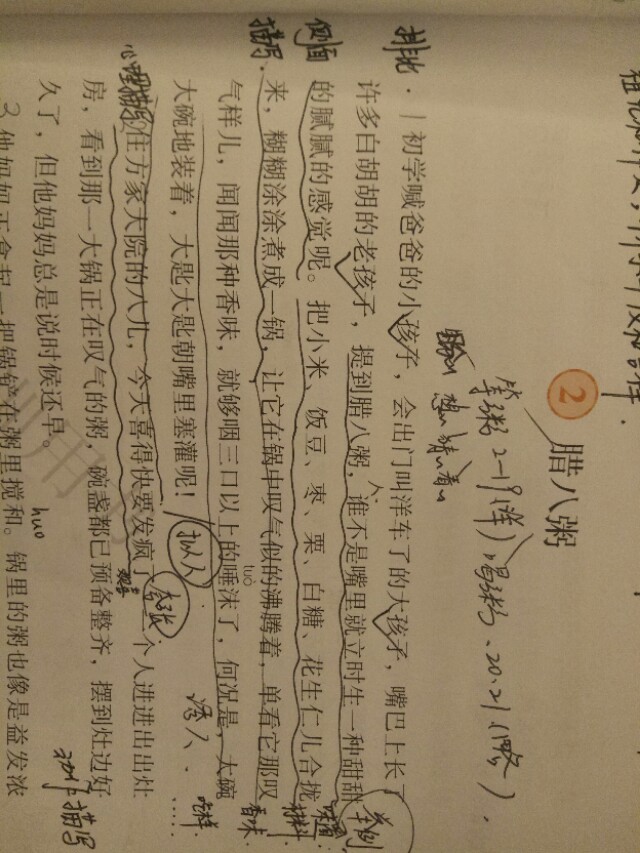 ② 腊八粥
等粥 2-19(详),喝粥、20.21(略).
想 看
排比.
初学喊爸爸的小孩子,会出门叫洋车了的大孩子,嘴巴上长了
许多白胡胡的老孩子,提到腊八粥,谁不是嘴里就立时生一种甜甜
侧面
的腻腻的感觉呢。把小米、饭豆、枣、栗、白糖、花生仁儿合拢
描写.
来,糊糊涂涂煮成一锅,让它在锅中叹气似的沸腾着,单看它那叹
tuò
气样儿,闻闻那种香味,就够咽三口以上的唾沫了,何况是,大碗
大碗地装着,大匙大匙朝嘴里塞灌呢!
举例
材料
香味
吃样
诱人.
......
拟人
夸张
心理描写
住方家大院的八儿,今天喜得快要发疯了。一个人进进出出灶
房,看到那一大锅正在叹气的粥,碗盏都已预备整齐,摆到灶边好
久了,但他妈妈总是说时候还早。
动作描写
huo
他妈妈正拿起一把锅铲在粥里搅和。锅里的粥也像是益发浓